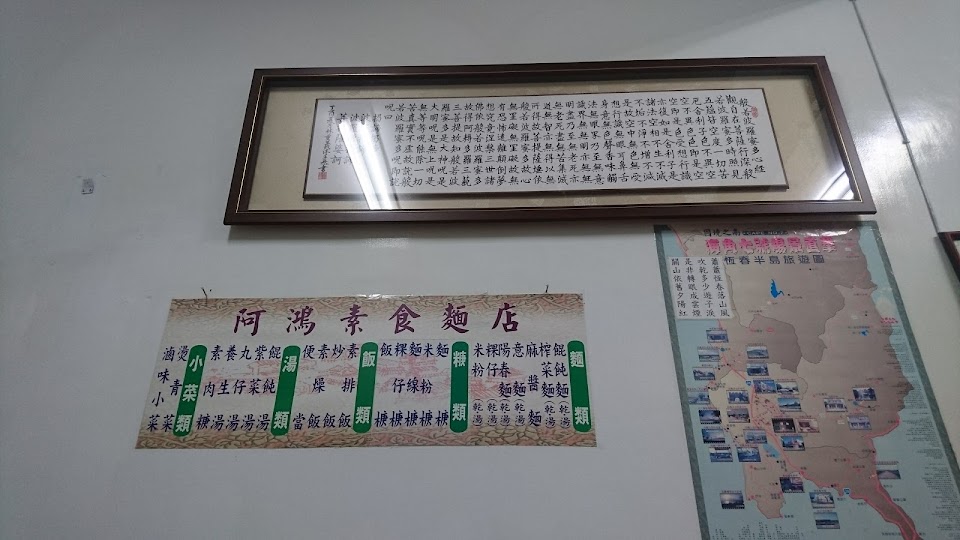 般若波羅蜜多心經
觀自在菩薩行深般
若波羅蜜多時照見
五蘊皆空度一切苦
厄舍利子色不異空
空不異色色即是空
空即是色受想行識
亦復如是舍利子是
諸法空相不生不滅
不垢不淨不增不減
是故空中無色無受
想行識無眼耳鼻舌
身意無色聲香味觸
法無眼界乃至無意
識界無無明亦無無
明盡乃至無老死亦
無老死盡無苦集滅
道無智亦無得以無
所得故菩提薩埵依
般若波羅蜜多故心
無罣礙無罣礙故無
有恐怖遠離顛倒夢
想究竟涅槃三世諸
佛依般若波羅蜜多
故得阿耨多羅三藐
三菩提故知般若波
羅蜜多是大神呪是
大明呪是無上呪是
無等等呪能除一切
苦真實不虛故說般
若波羅蜜多呪即說
呪曰
阿鴻素食麵店
麵類
餛飩麵(乾湯)
榨菜麵(乾湯)
麻醬麵
意麵(乾湯)
陽春麵(乾湯)
粿仔(乾湯)
米粉(乾湯)
類
麵
米粉
麵線
粿仔
飯
飯類
素排飯
炒飯
素燥飯
便當
湯類
餛飩湯
紫菜湯
丸仔湯
養生湯
素肉
小菜類
燙青菜
滷味小菜
恆春半島旅遊圖
蕭蕭恆春落山風
吹乾多少遊子淚
是非轉眼成雲煙
關山依舊夕陽紅